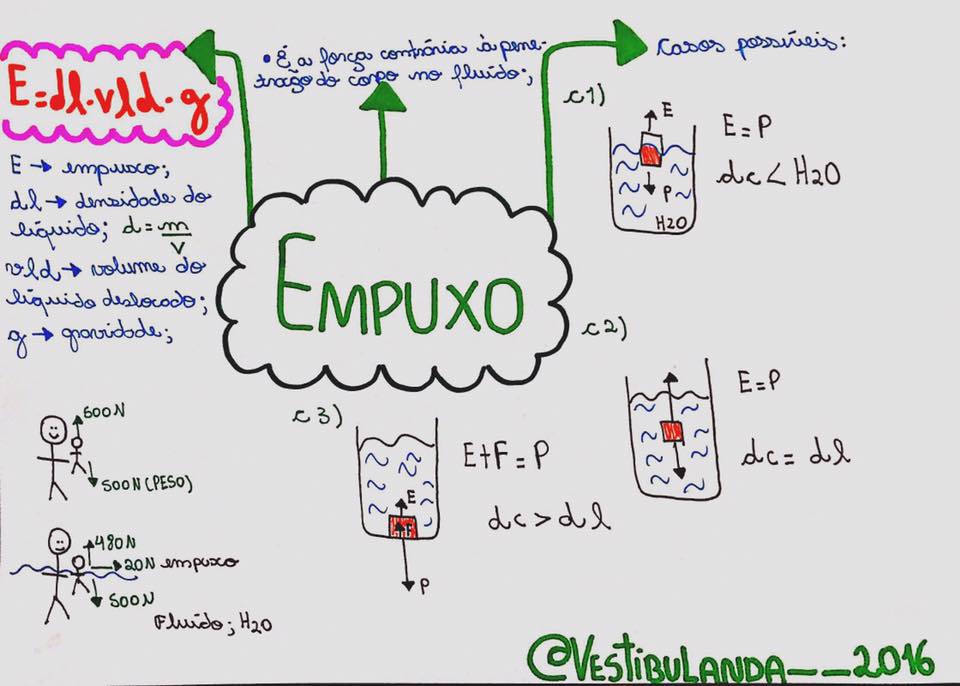 E=dl.vld.g
E → empuxo;
dl → densidade do
líquido; d=m/v
vld → volume do
líquido deslocado;
g → gravidade;
• É a força contrária à pene-
tração do corpo no fluído;
EMPUXO
Casos possíveis:
c1)
E
E=P
dc < H2O
P
H2O
c2)
E=P
dc = dl
c3)
E+F=P
dc > dl
E
F
P
500N (PESO)
480N
20N empuxo
500N
Fluído; H2O
@VESTIBULANDA__2016